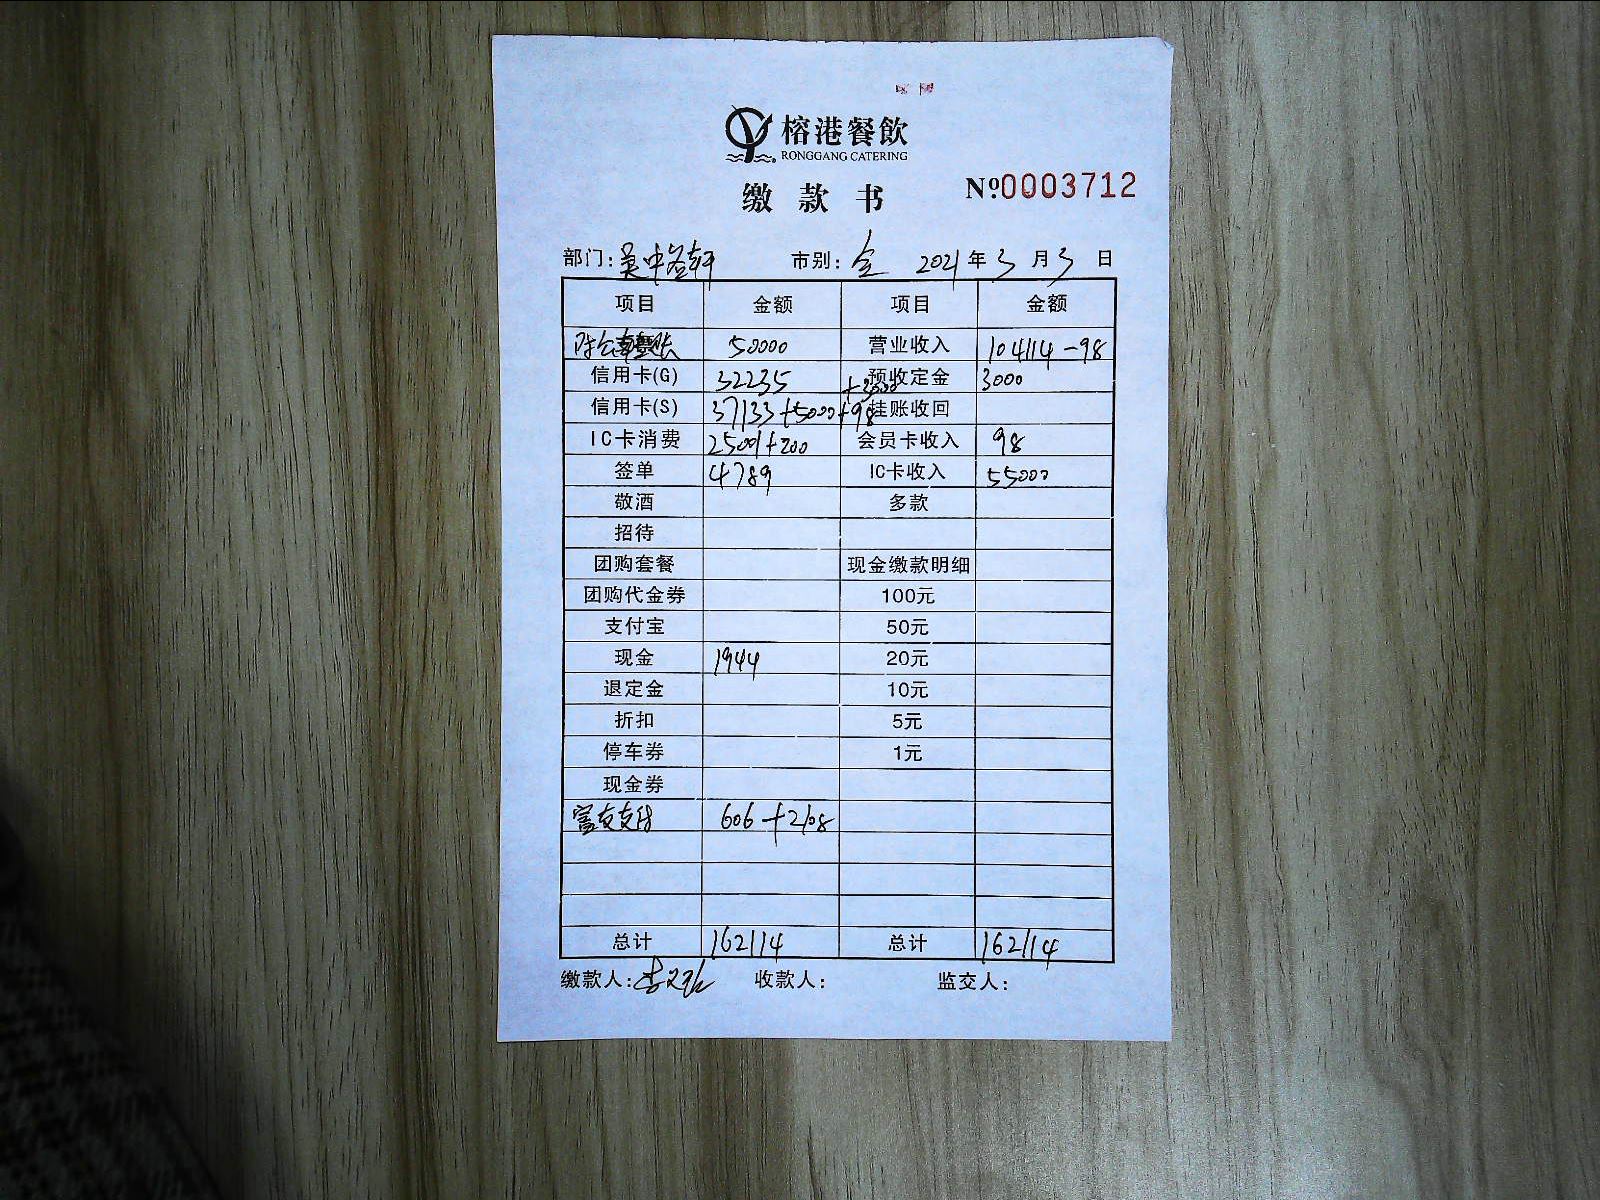 榕港餐飲
RONGGANG CATERING
缴款书 №0003712
部门: 吴中荟轩 市别: 全 2021年3月3日
项目 金额 项目 金额
50000 营业收入 104114-98
信用卡(G) 32235 预收定金 3000
信用卡(S) 37133+5000+98+3000 挂账收回
IC卡消费 25001+200 会员卡收入 98
签单 4789 IC卡收入 55000
敬酒 多款
招待
团购套餐 现金缴款明细
团购代金券 100元
支付宝 50元
现金 1944 20元
退定金 10元
折扣 5元
停车券 1元
现金券
富友支付 606+2108
总计 162114 总计 162114
缴款人: 收款人: 监交人: